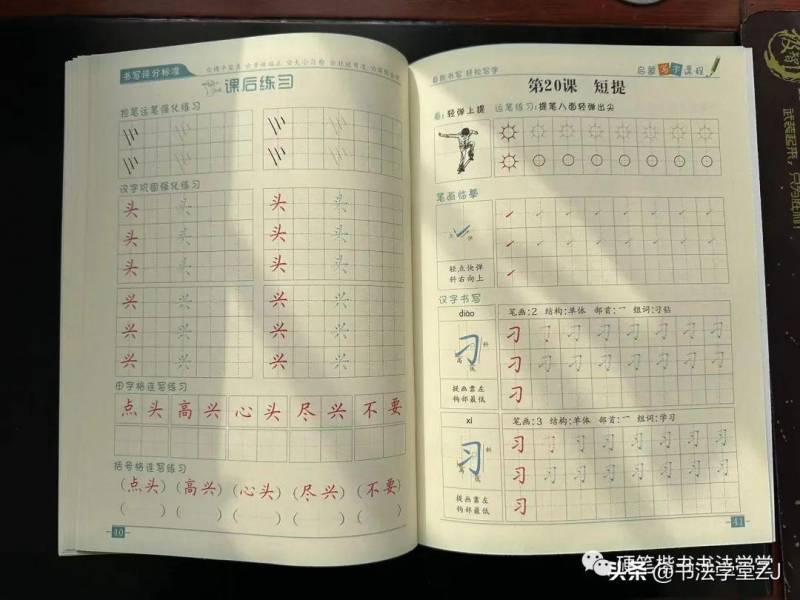 书写评分标准
课后练习
控笔运笔强化练习
汉字巩固强化练习
头 头 头 头
头 头
头 头
兴 兴 兴 兴
兴 兴
兴 兴
田字格连写练习
点头 高兴 心头 尽兴 不要
括号格连写练习
(点头) (高兴) (心头) (尽兴) (不要)
( ) ( ) ( ) ( ) ( )
40
轻松写字
启蒙写字课程
第20课 短提
轻弹上提 运笔练习:提笔八面轻弹出尖
笔画临摹
轻点快弹
斜右向上
汉字书写
diāo 笔画:2 结构:单体 部首:㇆ 组词:刁钻
刁 刁 刁 刁 刁 刁 刁 刁 刁
刁 刁 刁 刁 刁 刁 刁 刁
提画靠左
钩部最低
刁
xí 笔画:3 结构:单体 部首:㇆ 组词:学习
习 习 习 习 习 习 习 习 习
习 习 习 习 习 习 习 习
提画靠左
钩部最低
习
41
硬笔楷书书法学堂
头条 @书法学堂ZJ